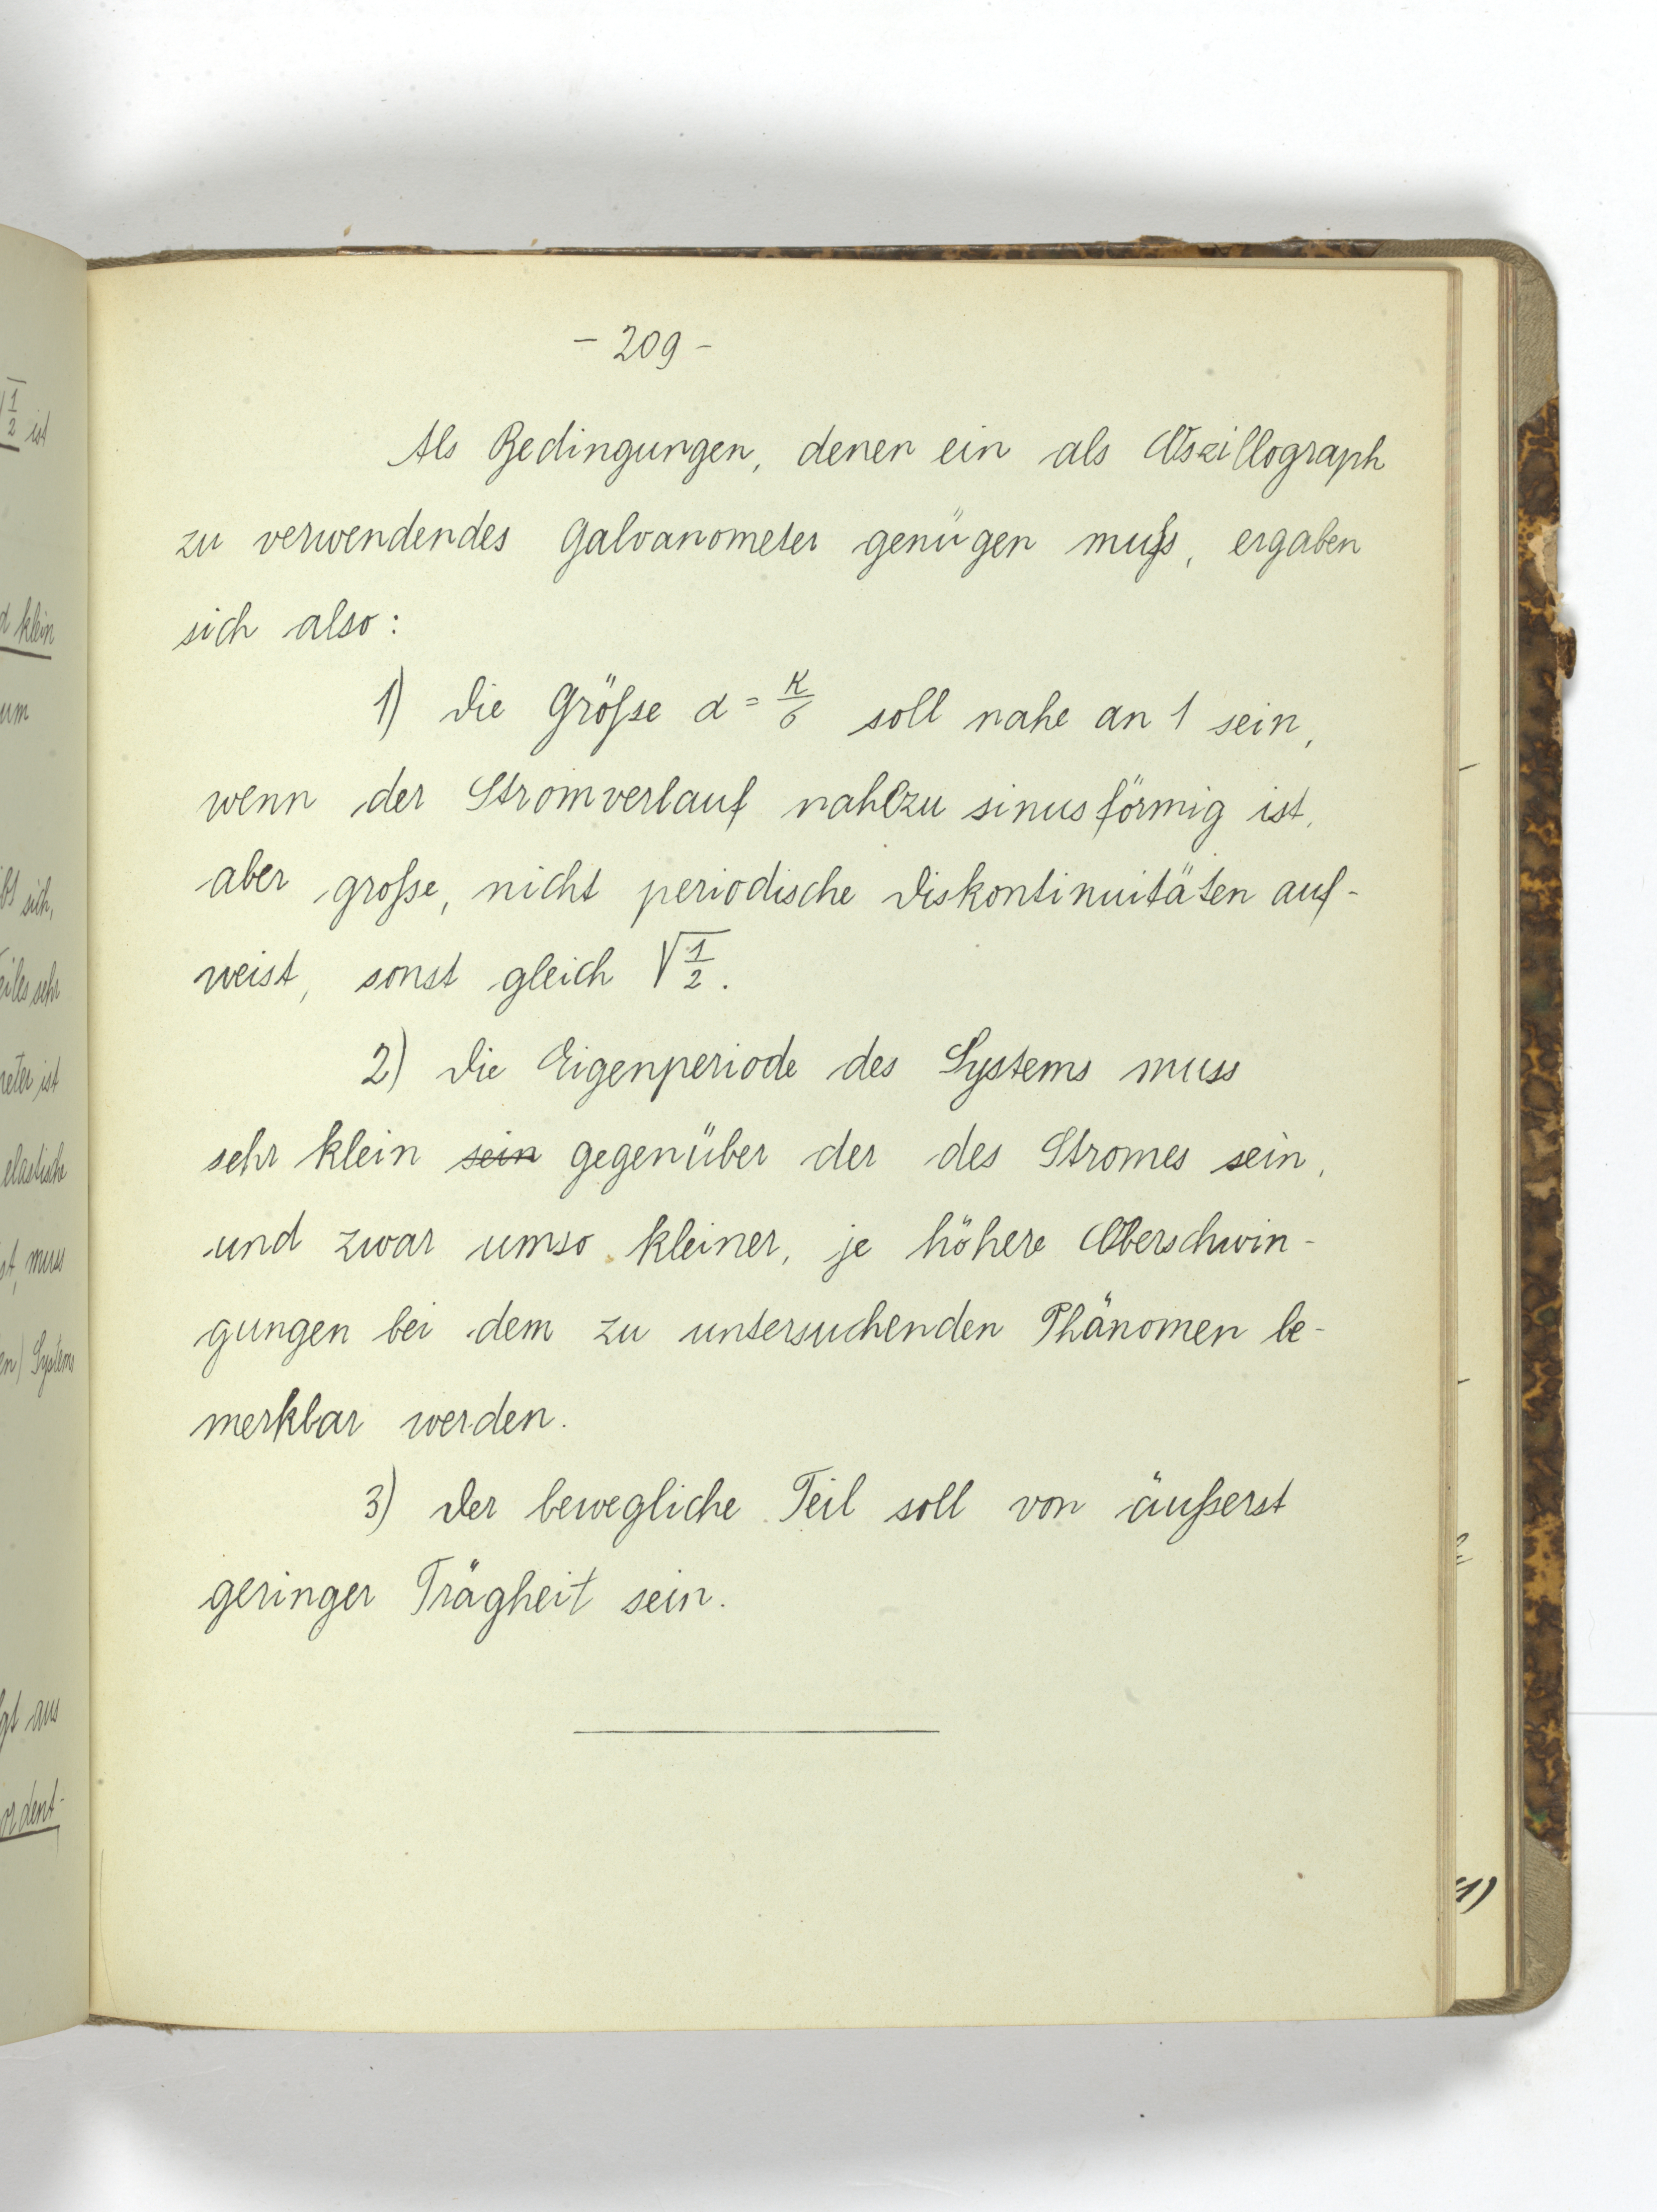 - 209 -
Als Bedingungen, denen ein als Oszillograph
zu verwendendes Galvanometer genügen muß, ergaben
sich also:
1) Die Größe α = κ/σ soll nahe an 1 sein,
wenn der Stromverlauf nahezu sinusförmig ist,
aber große, nicht periodische Diskontinuitäten auf-
weist, sonst gleich √1/2.
2) Die Eigenperiode des Systems muss
sehr klein sein gegenüber der des Stromes sein,
und zwar umso kleiner, je höhere Oberschwin-
gungen bei dem zu untersuchenden Phänomen be-
merkbar werden.
3) Der bewegliche Teil soll von äußerst
geringer Trägheit sein.